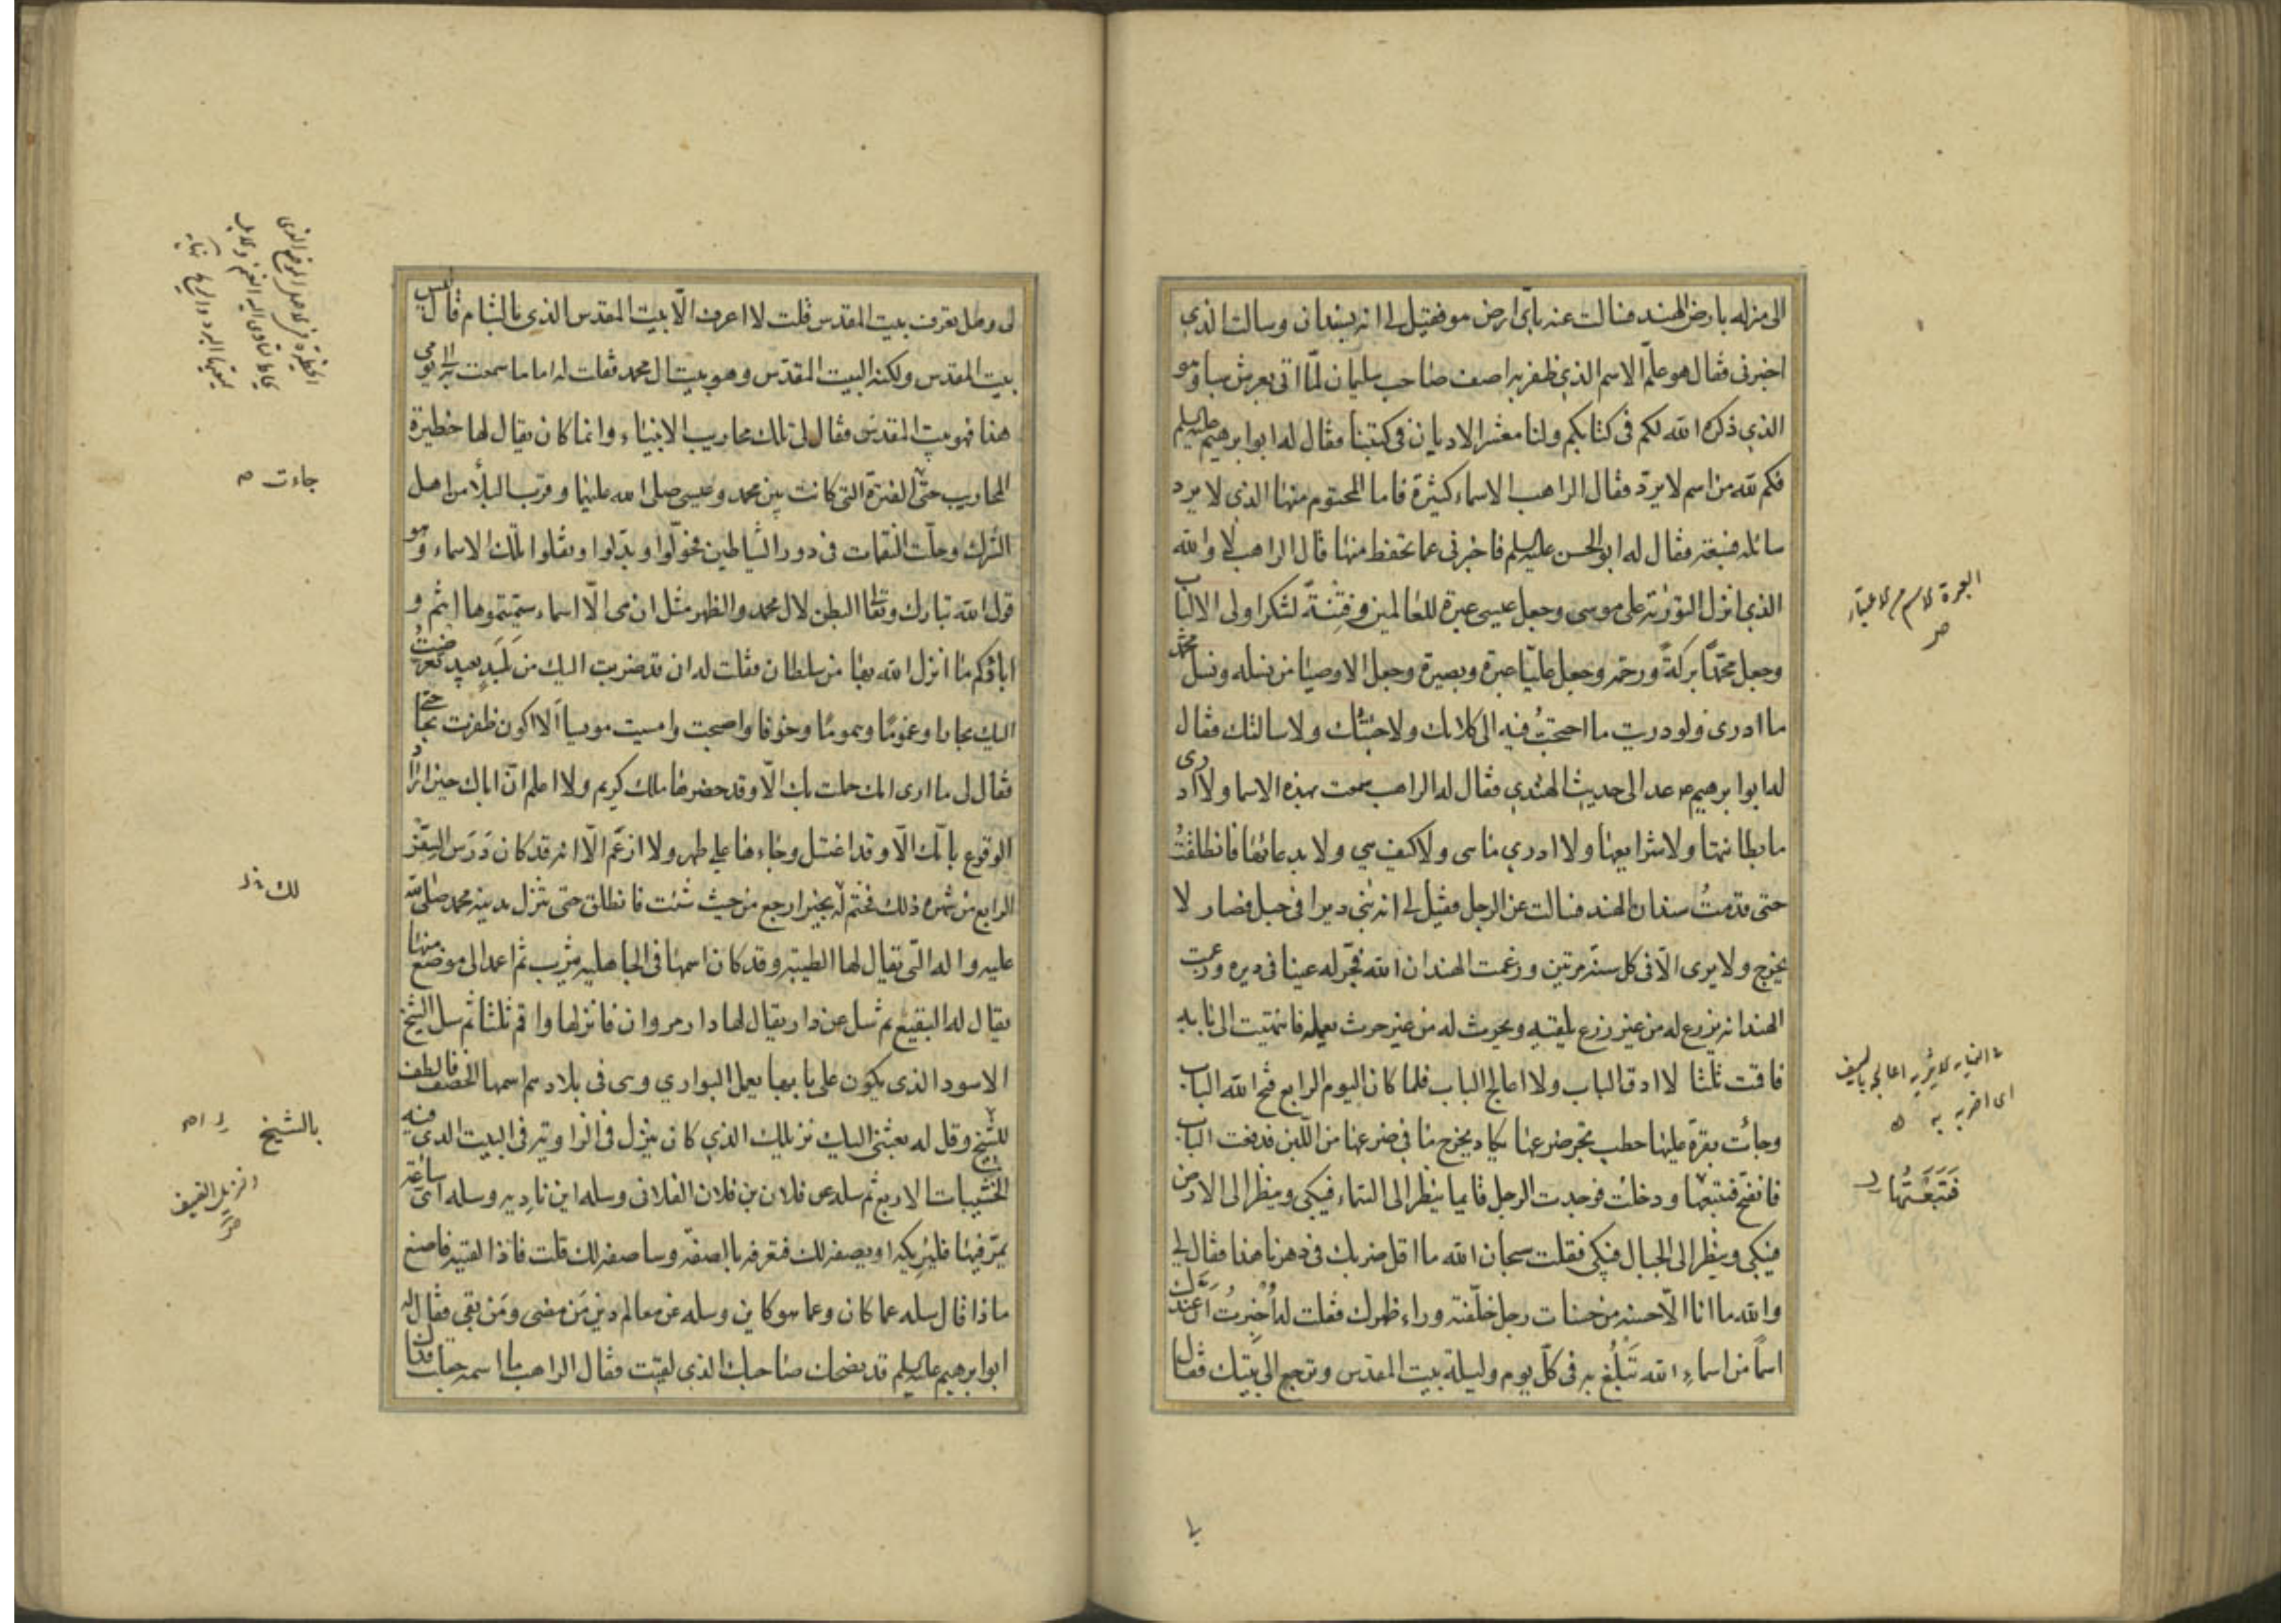 الى منزله بارض الهند فسالت عنه باىّ ارض هو فقيل لى انه بسبذان وسالت الذى
اخبرنى فقال هو علم الاسم الذى ظفر به اصف صاحب سليمان لمّا اتى بعرش سبا وهو
الذى ذكره الله لكم فى كتابكم ولنا معشر الاديان فى كتبنا فقال له ابو ابرهيم عليه السلم
فكم لله من اسم لا يردّ فقال الراهب الاسماء كثيرة فاما المحتوم منها الذى لا يرد
سائله فسبعة فقال له ابو الحسن عليه السلم فاخبرنى عما تحفظ منها قال الراهب لا والله
الذى انزل التورية على موسى وجعل عيسى عبرة للعالمين وفتنةً لشكر اولى الالباب
وجعل محمّدًا بركةً ورحمة وجعل عليّا عبرة وبصيرة وجعل الاوصيا من نسله ونسل محمّد
ما ادرى ولو دريت ما احتجتُ فيه الى كلامك ولا جئتُك ولا سالتك فقال
له ابو ابرهيم ع عد الى حديث الهندى فقال له الراهب سمعت بهذه الاسما ولا ادرى
ما بطانتها ولا شرايعها ولا ادرى ما هى ولا كيف هى ولا بدعائها فانطلقتُ
حتى قدمتُ سندان الهند فسالت عن الرجل فقيل لى انه بنى ديرا فى جبل فصار لا
يخرج ولا يرى الّا فى كل سنة مرتين وزعمت الهند ان الله فجّر له عينا فى ديره وزعمت
الهند انه يزرع له من غير زرع يلقيه ويحرث له من غير حرث يعمله فانتهيت الى بابه
فاقمت ثلثا لا ادق الباب ولا اعالج الباب فلما كان اليوم الرابع فتح الله الباب
وجائت بقرة عليها حطب تجر ضرعها يكاد يخرج ما فى ضرعها من اللّبن فدفعت الباب
فانفتح فتبعتها ودخلت فوجدت الرجل قايما ينظر الى السّماء فيبكى وينظر الى الارض
فيبكى وينظر الى الجبال فيبكى فقلت سبحان الله ما اقل ضربك فى دهرنا هذا فقال لى
والله ما انا الّا حسنة من حسنات رجل خلّفته وراء ظهرك فقلت له أُخبِرتُ أنّ عندك
اسمًا من اسماءِ الله تَبْلُغ به فى كلّ يوم وليلة بيت المقدس وترجع الى بيتك فقال
العبرة الاسم من الاعتبار
ص
اى اضربه به
فَتَبِعْتُها
لى وهل تعرف بيت المقدس قلت لا اعرف الّا بيت المقدس الذى بالشام قال ليس
بيت المقدس ولكنه البيت المقدّس وهو بيت ال محمد فقلت له اما ما سمعت به الى يومى
هذا فهو بيت المقدس فقال لى تلك محاريب الانبياء وانما كان يقال لها حظيرة
المحاريب حتّى الفترة التى كانت بين محمد وعيسى صلى الله عليهما وقرب البلأ من اهل
الشرك وحلّت النقمات فى دور الشياطين فحوّلوا وبدّلوا ونقلوا تلك الاسماء وهو
قول الله تبارك وتعالى البطن لال محمد والظهر مثل ان هى الّا اسماء سمّيتموها انتم و
اباؤكم ما انزل الله بها من سلطان فقلت له انى قد ضربت اليك من بَلَدٍ بعيد تعرّضتُ
اليك بحارا وغمومًا وهمومًا وخوفا واصبحت وامسيت مويسا اَلّا اكون ظفرت بحاجتى
فقال لى ما ارى امك حملت بك الّا وقد حضرها ملك كريم ولا اعلم انّ اباك حين اراد
الوقوع بامّك الّا وقد اغتسل وجاءها على طهر ولا ازعَم الّا انه قد كان دَرَس السّفر
الرابع من شهره ذلك فختم له بخير ارجع من حيث شئت فانطلق حتى تنزل مدينة محمد صلى الله
عليه واله التى يقال لها الطيبة وقد كان اسمها فى الجاهلية يثرب ثم اعمد الى موضع منها
يقال له البقيع ثم سل عن دار يقال لها دار مروان فانزلها واقم ثلثا ثم سل الشيخ
الاسود الذى يكون على بابها يعمل البوارى وهى فى بلادهم اسمها الخصف فالطف
للشيخ وقل له بعثنى اليك نزيلك الذى كان ينزل فى الزاوية فى البيت الذى فيه
الخشيبات الاربع ثم سله عن فلان بن فلان الفلانى وسله اين ناديه وسله اىّ ساعة
يمرّ فيها فليريكه او يصفه لك فتعرفه بالصفة وساصفه لك قلت فاذا لقيته فاصنع
ماذا قال سله عما كان وعما هو كاين وسله عن معالم دين مَن مضى ومَن بقى فقال له
ابو ابرهيم عليه السلم قد نصحك صاحبك الذى لقيت فقال الراهب ما اسمه جعلت فداك
جاءت
لك
بالشيخ
النزيل الضيف